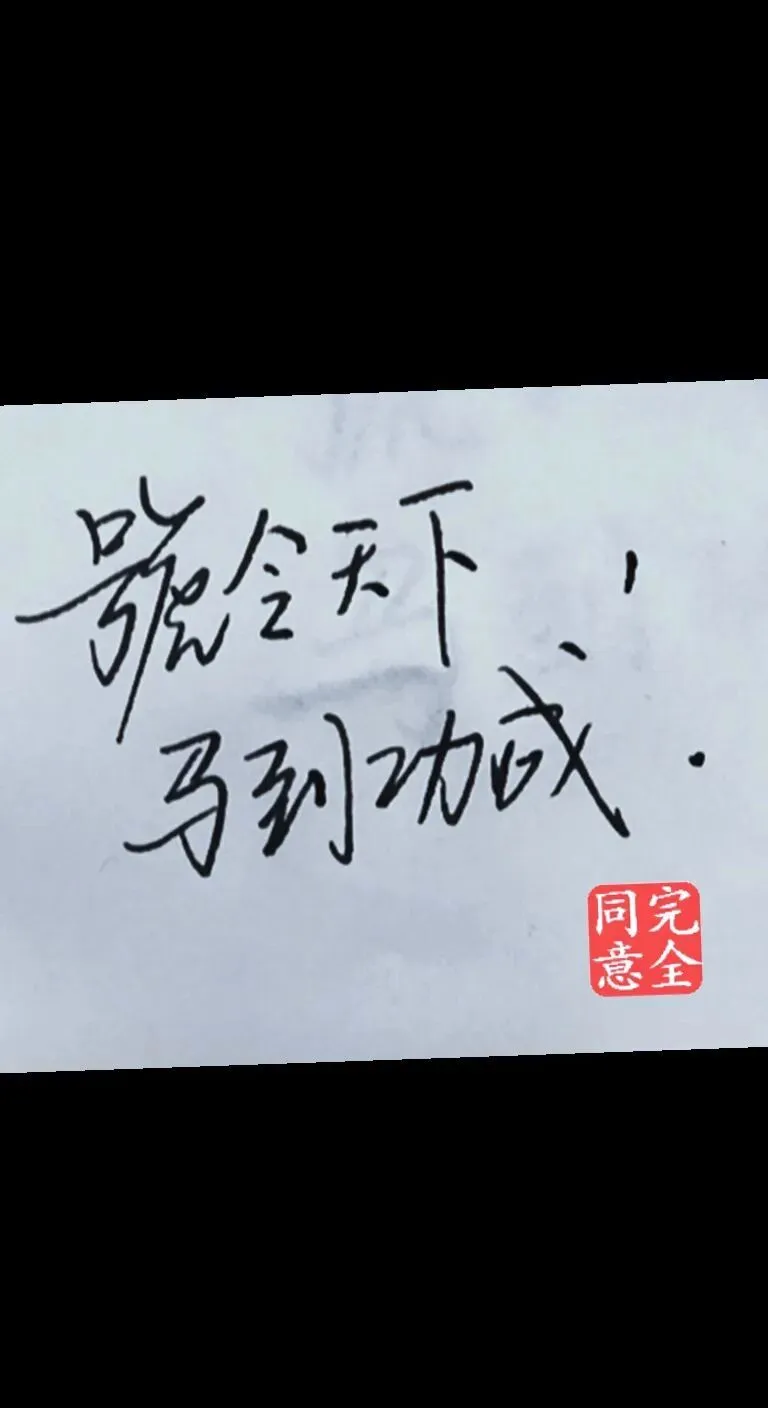 號令天下，
马到功成.
完全
同意